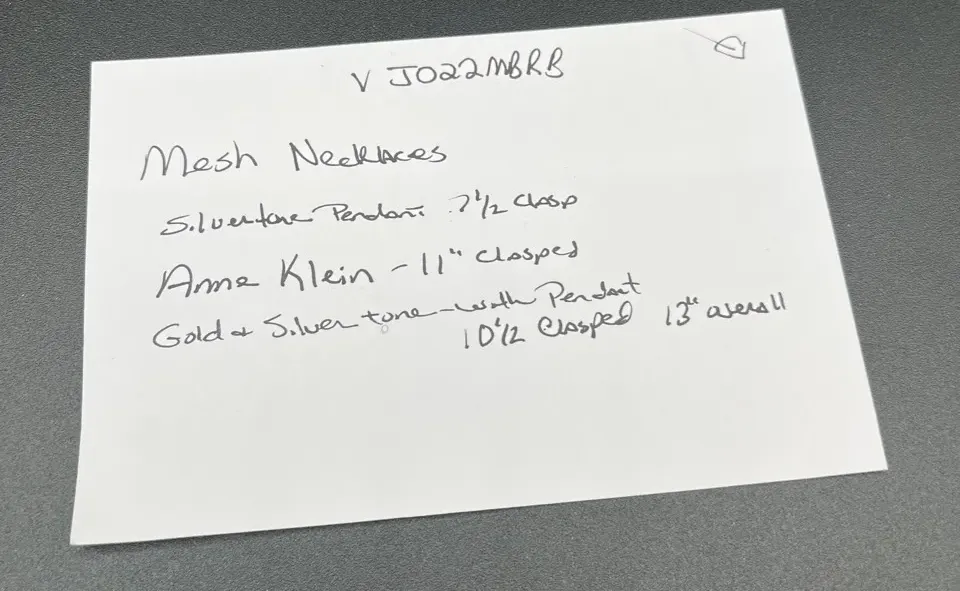 V JO22MBRB
Mesh Necklaces
Silvertone Pendant 7 1/2 Clasp
Anne Klein - 11" Clasped
Gold & Silver tone - with Pendant
10 1/2 Clasped 13" overall